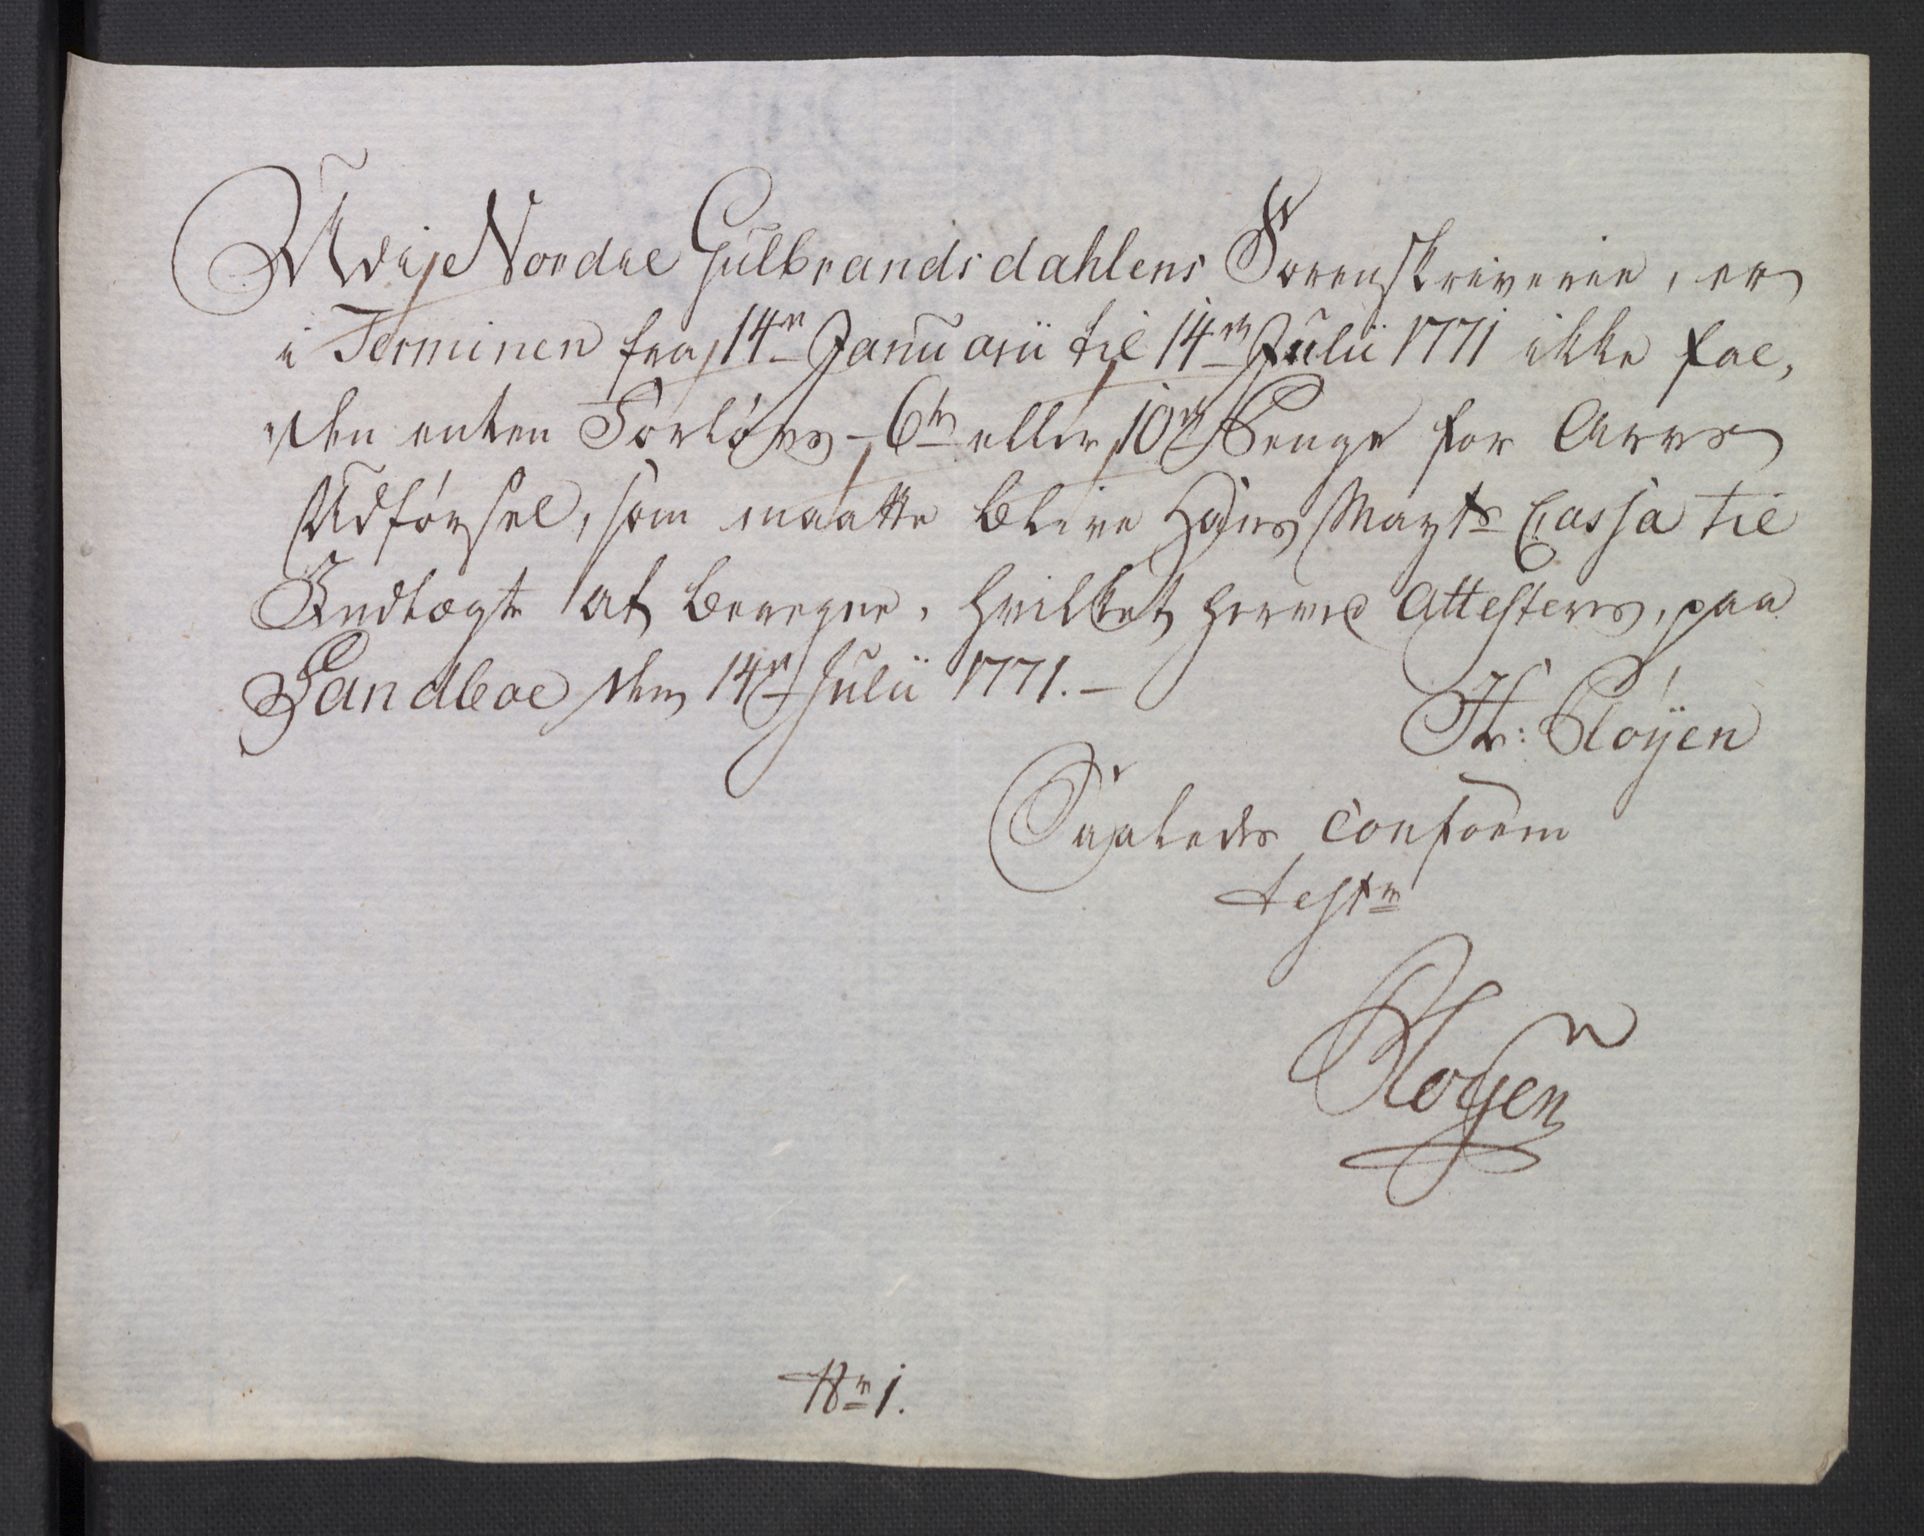 Udi Nordre Gulbrandsdahlens Sorenskriverie, er
i Terminen fra 14de Januarii til 14de Julii 1771 ikke fal,
den enten Forlovs 6te eller 10de Penge for Arve
Udførsel, som maatte blive Hans Mayts Cassa til
Indtægt at beregne, hvilket herved Attesteres, paa
Sandboe den 14de Julii 1771.
Pløyen
Saaledes conform
test
Pløyen
No 1.